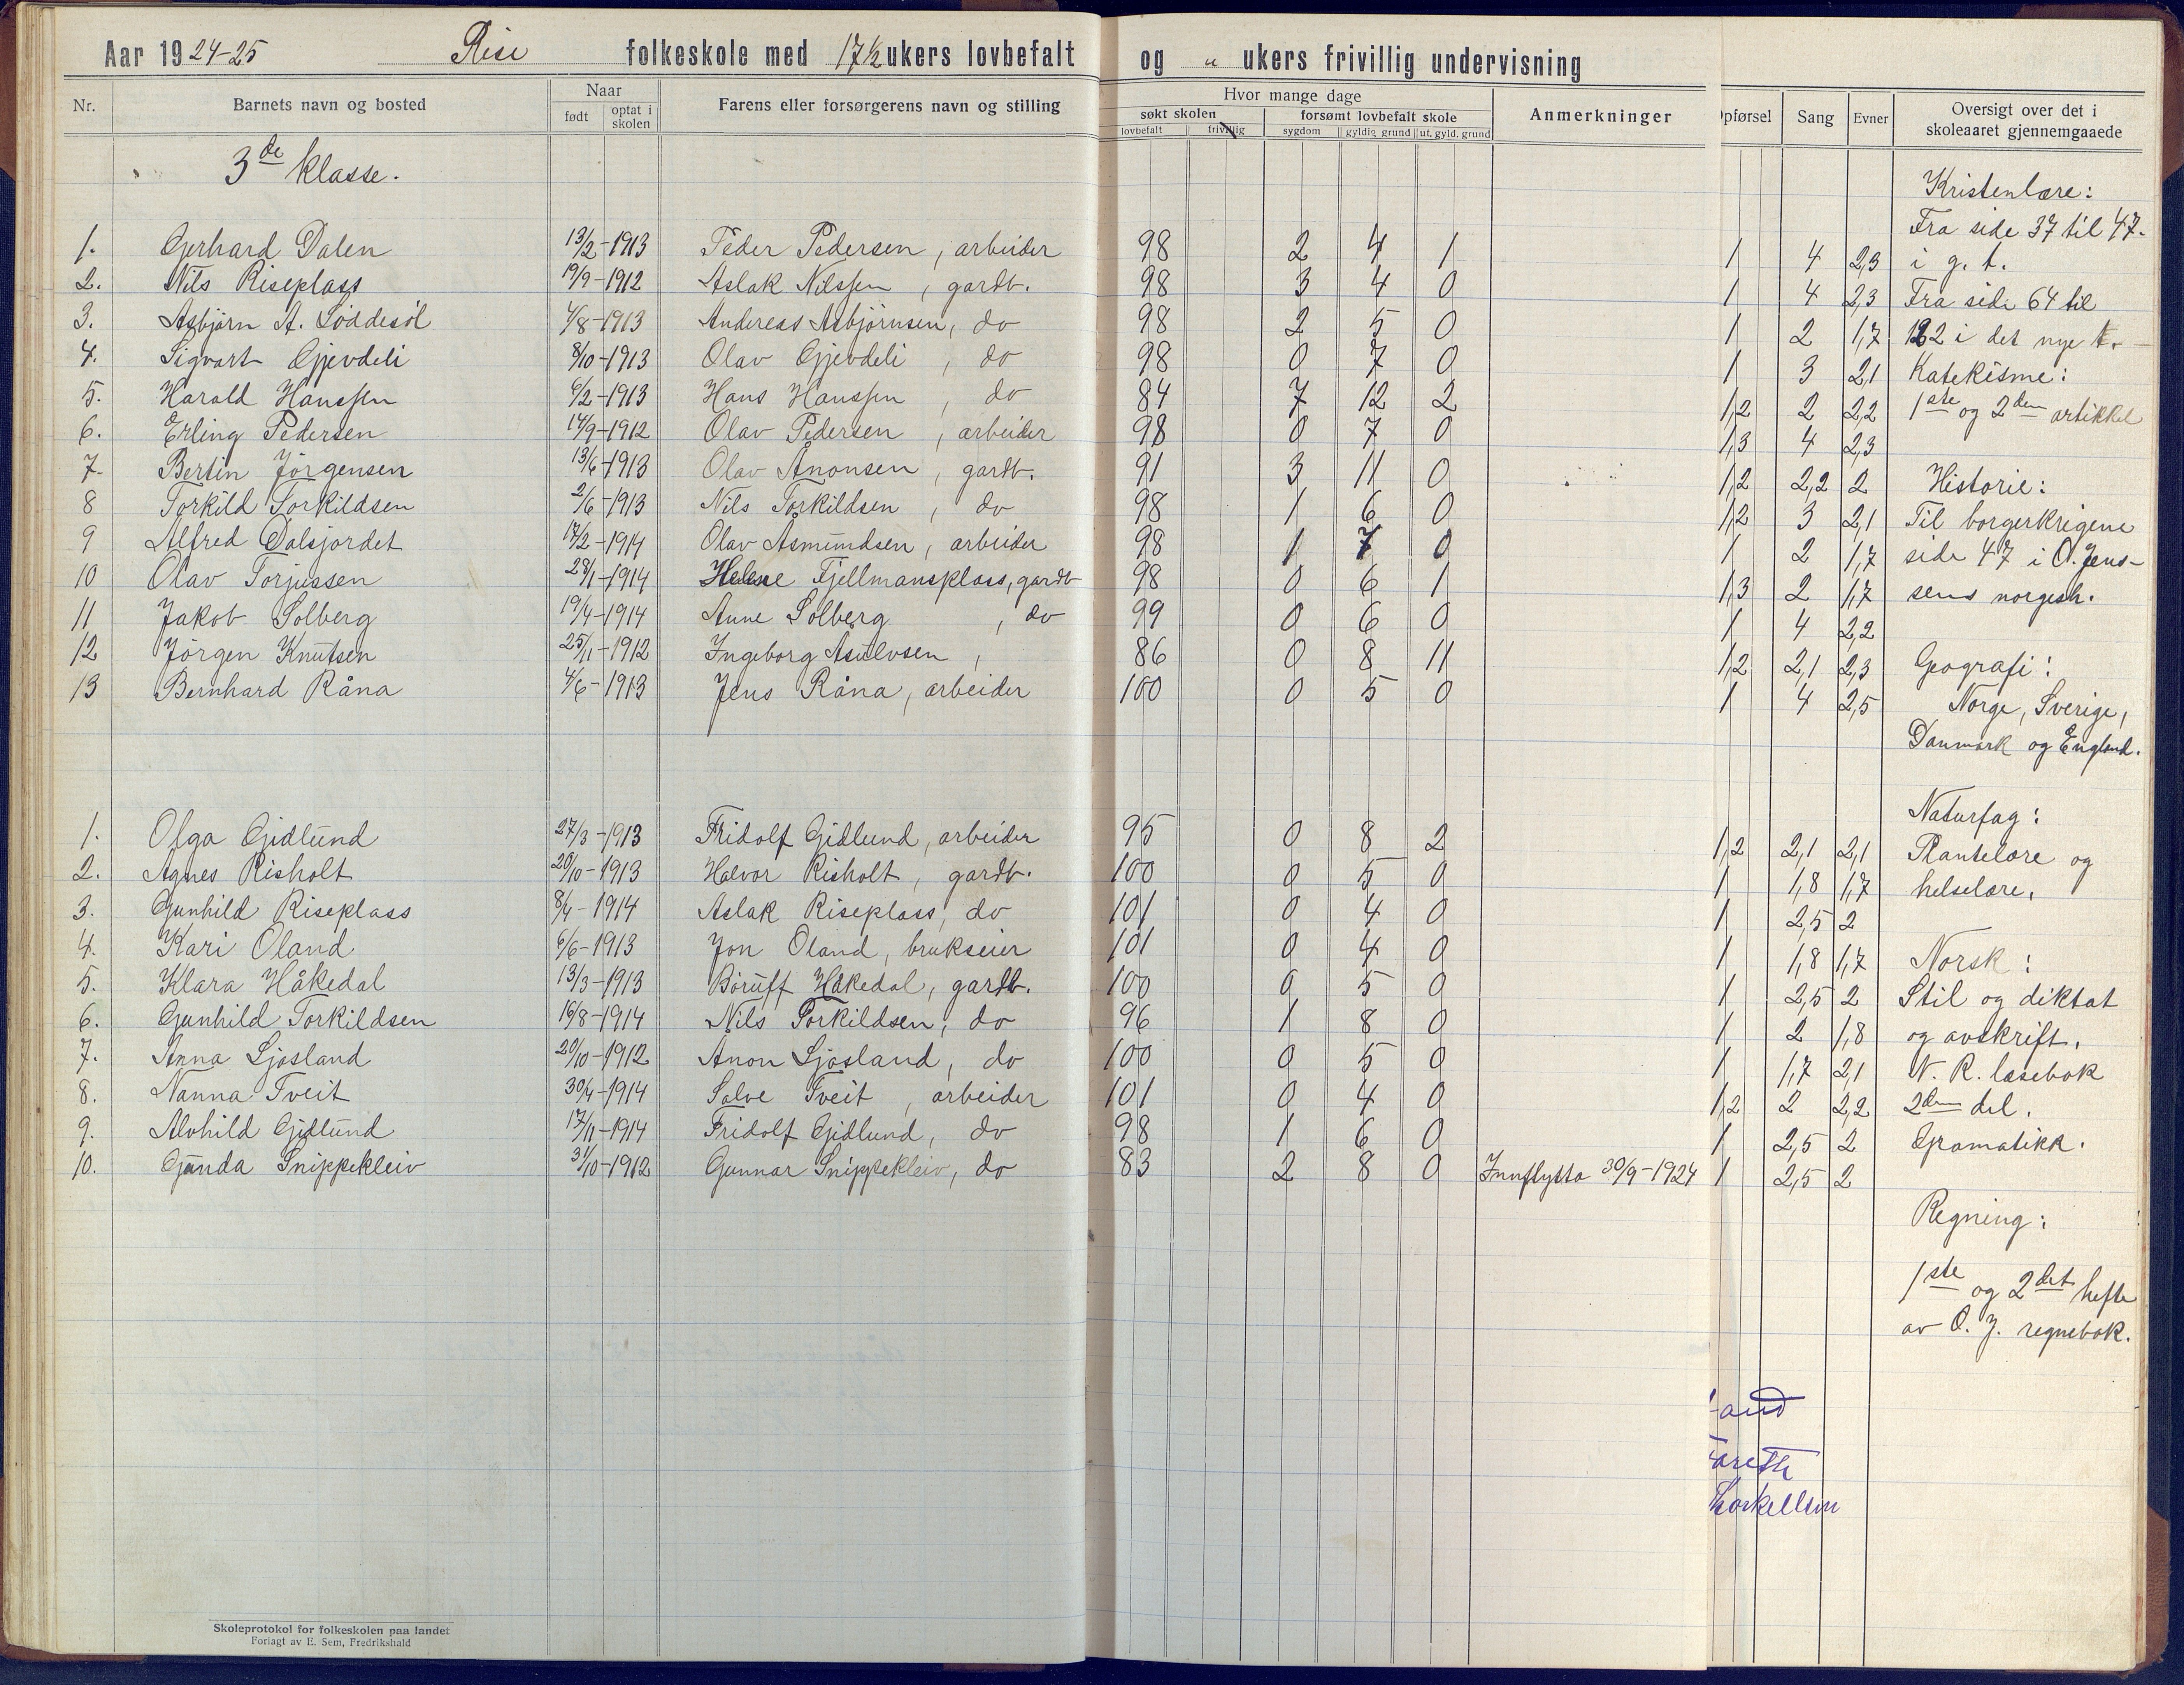 Aar 1924-25 Rise folkeskole med 17½ ukers lovbefalt og " ukers frivillig undervisning
Nr. Barnets navn og bosted Naar født optat i skolen Farens eller forsørgerens navn og stilling Hvor mange dage søkt skolen lovbefalt frivillig forsømt lovbefalt skole sygdom gyldig grund ut. gyld. grund Anmerkninger Opførsel Sang Evner Oversigt over det i skoleaaret gjennemgaaede
3de klasse.
Kristenlære:
Fra side 37 til 47.
1. Gerhard Dalen 13/2-1913 Peder Pedersen, arbeider 98 2 4 1 1 4 2,3 i g. t.
2. Nils Riseplass 19/9-1912 Aslak Nilssen, gardb. 98 3 4 0 1 4 2,3 Fra side 64 til
3. Asbjörn A. Löddesöl 4/8-1913 Andreas Asbjörnsen, do 98 2 5 0 1 2 1,7 122 i det nye t.
4. Sigvart Gjevdeli 8/10-1913 Olav Gjevdeli, do 98 0 7 0 1 3 2,1 Katekisme:
5. Harald Hanssen 6/2-1913 Hans Hanssen, do 84 7 12 2 1,2 2 2,2 1ste og 2den artikkel
6. Erling Pedersen 14/9-1912 Olav Pedersen, arbeider 98 0 7 0 1,3 4 2,3
7. Bertin Jörgensen 13/6-1913 Olav Anonsen, gardb. 91 3 11 0 1,2 2,2 2 Historie:
8 Torkild Torkildsen 2/6-1913 Nils Torkildsen, do 98 1 6 0 1,2 3 2,1 Til borgerkrigene
9 Alfred Dalsjordet 17/2-1914 Olav Asmundsen, arbeider 98 1 7 0 1 2 1,7 side 47 i O. Jens-
10 Olav Torjussen 28/1-1914 Helene Fjellmansplass, gardb 98 0 6 1 1,3 2 1,7 sens norgesh.
11 Jakob Solberg 19/4-1914 Anne Solberg, do 99 0 6 0 1 4 2,2
12 Jörgen Knutsen 25/11-1912 Ingeborg Asulvsen, 86 0 8 11 1,2 2,1 2,3 Geografi:
13 Bernhard Råna 4/6-1913 Jens Råna, arbeider 100 0 5 0 1 4 2,5 Norge, Sverige,
Danmark og England.
Naturfag:
1. Olga Gidlund 27/3-1913 Fridolf Gidlund, arbeider 95 0 8 2 1,2 2,1 2,1 Plantelære og
2. Agnes Risholt 20/10-1913 Halvor Risholt, gardb. 100 0 5 0 1 1,8 1,7 helselære.
3. Gunhild Riseplass 8/4-1914 Aslak Riseplass, do 101 0 4 0 1 2,5 2
4. Kari Oland 6/6-1913 Jon Oland, brukseier 101 0 4 0 1 1,8 1,7 Norsk:
5. Klara Håkedal 13/3-1913 Böruff Håkedal, gardb. 100 0 5 0 1 2,5 2 Stil og diktat
6. Gunhild Torkildsen 16/8-1914 Nils Torkildsen, do 96 1 8 0 1 2 1,8 og avskrift.
7. Anna Ljosland 20/10-1912 Anon Ljosland, do 100 0 5 0 1 1,7 2,1 N. R. læsebok
8. Nanna Tveit 30/4-1914 Salve Tveit, arbeider 101 0 4 0 1,2 2 2,2 2den del.
9. Alvhild Gidlund 17/11-1914 Fridolf Gidlund, do 98 1 6 0 1 2,5 2 Gramatikk.
10. Gunda Snippekleiv 31/10-1912 Gunnar Snippekleiv, do 83 2 8 0 Innflytta 30/9-1924 1 2,5 2
Regning:
1ste og 2det hefte
av O. J. regnebok.
Skoleprotokol for folkeskolen paa landet
Forlagt av E. Sem, Fredrikshald